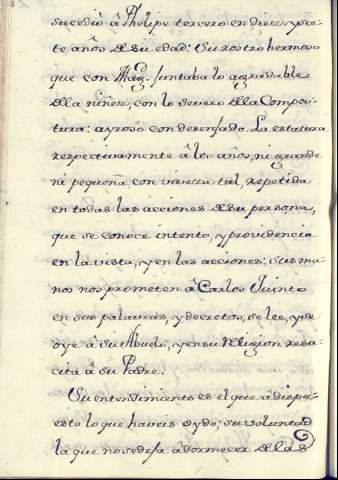 sucedió â Phelipe tercero en diez, y sie-
te años de su edad: Su rostro hermoso
que con Mag. juntaba lo agradable
de la niñez, con lo severo de la Compos-
tura: ayroso con desenfado. La estatura
respectivamente â los años, ni grande
ni pequeña con viveza tal, repetida
en todas las acciones de su persona,
que se conoce intento, y providencia
en la vista, y en las acciones: sus ma-
nos nos prometen â Carlos Quinto
en sus palabras, y decretos, se lee, y se
oye â su Abuelo, y en su religion resu-
cita â su Padre.
Su entendimiento es el que â dispu-
esto lo que haveis oydo; su voluntad
la que no se deja âdormecer de las